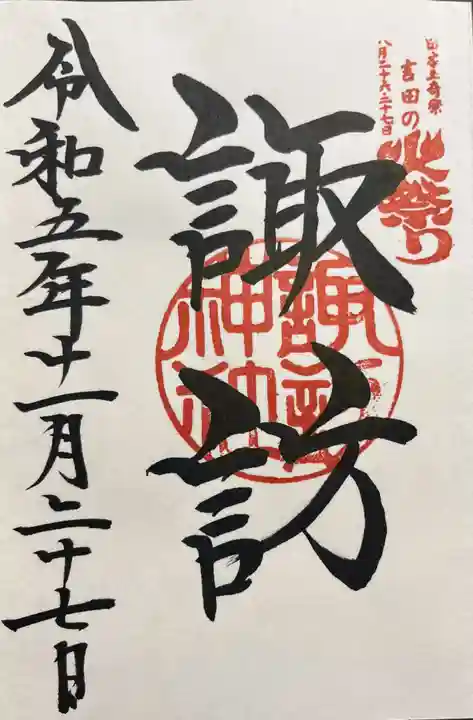 日本三奇祭
吉田の火祭り
八月二十六、二十七日
諏訪
諏訪神社
令和五年十一月二十七日